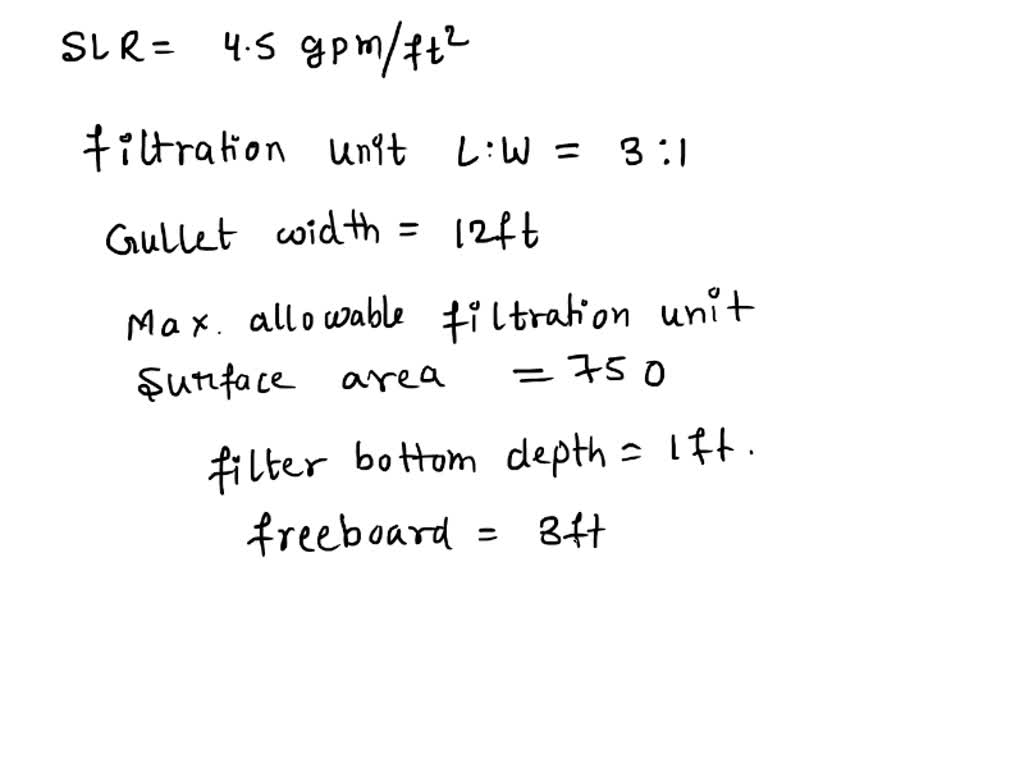 SLR = 4.5 gpm/ft²
filtration unit L:W = 3:1
Gullet width = 12ft
Max. allowable filtration unit
Surface area = 750
filter bottom depth = 1ft.
freeboard = 3ft